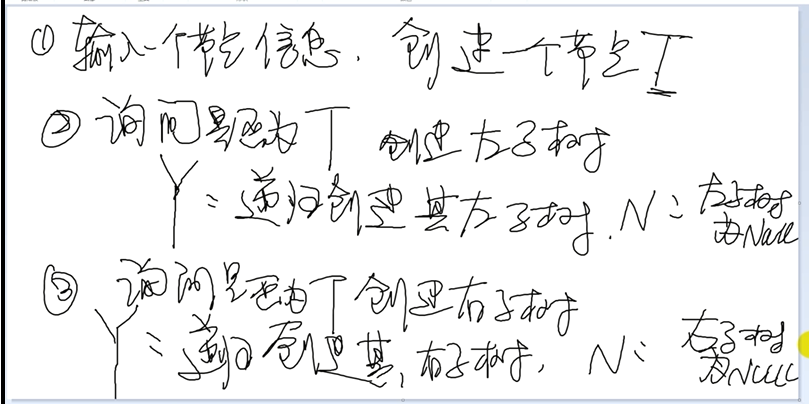 ① 输入一个节点信息. 创建一个节点T
② 询问是否为T 创建左子树
Y: 递归创建其左子树. N: 左子树为NULL
③ 询问是否为T创建右子树
Y: 递归创建其右子树, N: 右子树为NULL